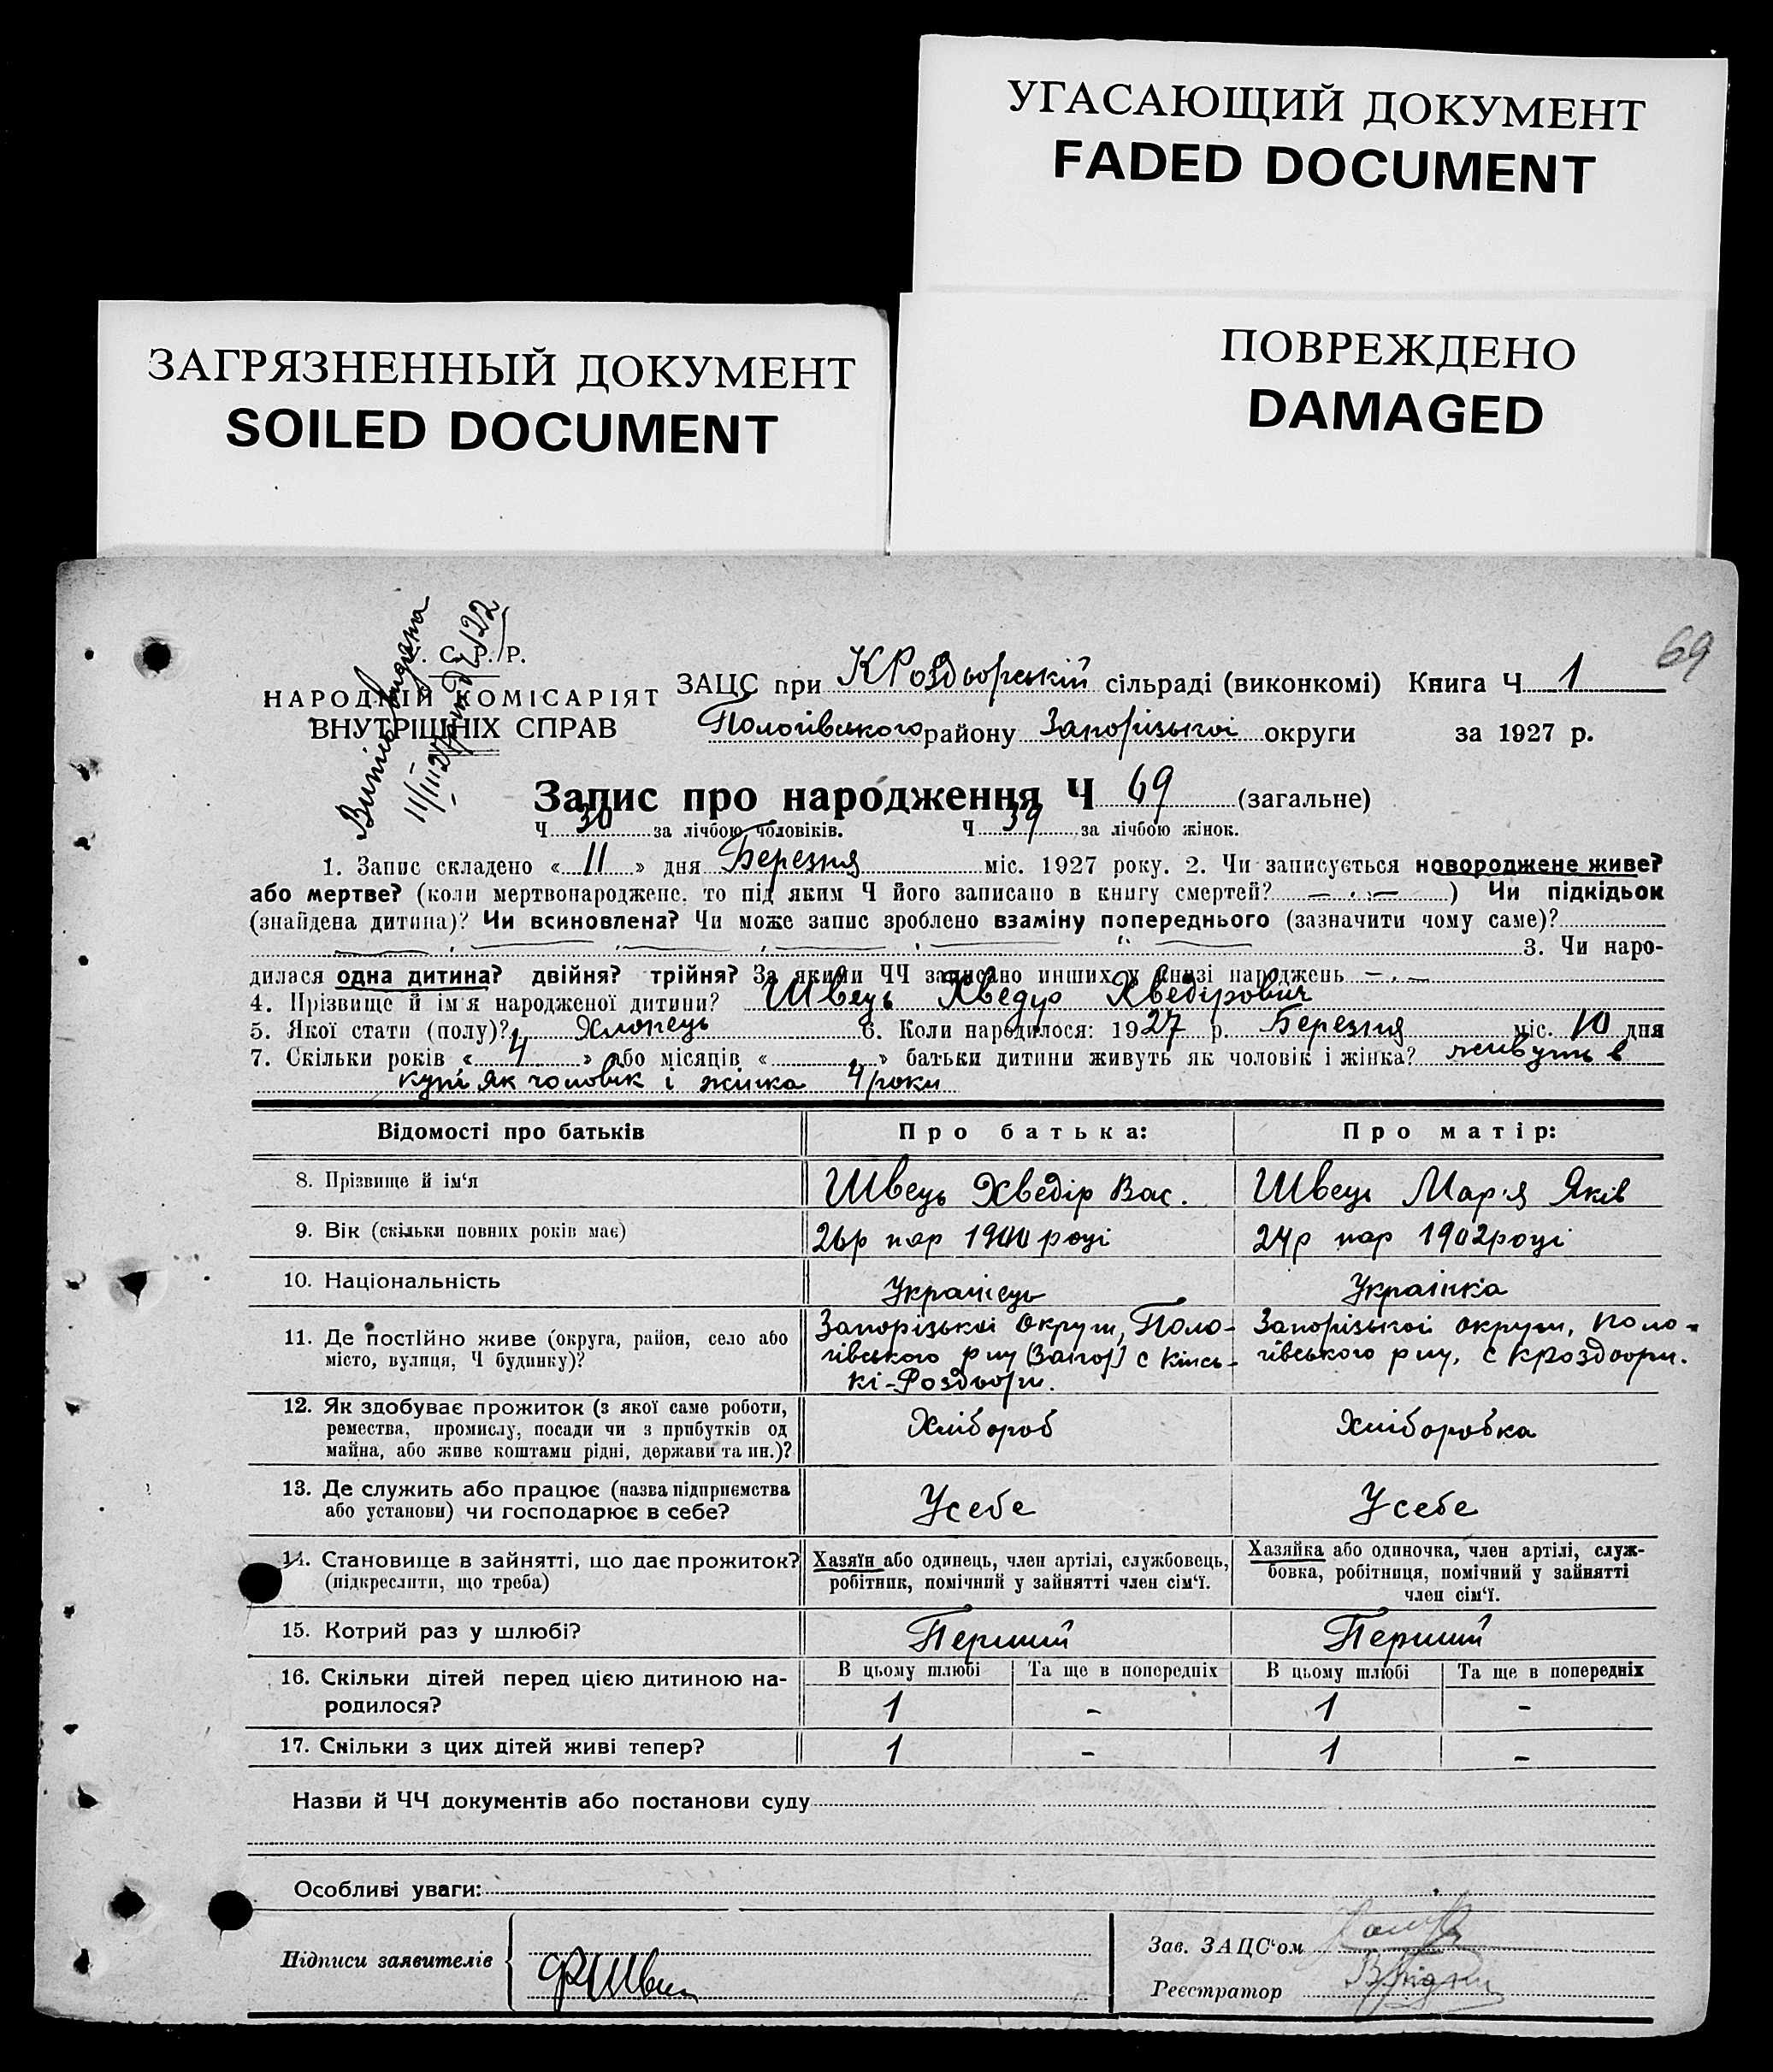 УГАСАЮЩИЙ ДОКУМЕНТ
FADED DOCUMENT
ЗАГРЯЗНЕННЫЙ ДОКУМЕНТ
SOILED DOCUMENT
ПОВРЕЖДЕНО
DAMAGED
69
С. Р. Р.
НАРОДНІЙ КОМІСАРІЯТ
ВНУТРІШНІХ СПРАВ
ЗАЦС при КРоздворській сільраді (виконкомі) Книга Ч 1
Пологівського району Запорізької округи за 1927 р.
Запис про народження Ч 69 (загальне)
Ч 30 за лічбою чоловіків. Ч 39 за лічбою жінок.
1. Запис складено « 11 » дня Березня міс. 1927 року. 2. Чи записується новороджене живе?
або мертве? (коли мертвонароджене, то під яким Ч його записано в книгу смертей? — . — ) Чи підкідьок
(знайдена дитина)? Чи всиновлена? Чи може запис зроблено взаміну попереднього (зазначити чому саме)?
3. Чи наро-
дилася одна дитина? двійня? трійня? За якими ЧЧ записано инших у книзі народжень — . —
4. Прізвище й ім'я народженої дитини? Швець Хведир Хведірович
5. Якої стати (полу)? Хлопець 6. Коли народилося: 1927 р. Березня міс. 10 дня
7. Скільки років « 4 » або місяців « » батьки дитини живуть як чоловік і жінка? живуть в
купі як чоловік і жінка 4 роки
Відомості про батьків Про батька: Про матір:
8. Прізвище й ім'я Швець Хведір Вас. Швець Мар'я Яків
9. Вік (скільки повних років має) 26р нар 1900 році 24р нар 1902 році
10. Національність Українець Українка
11. Де постійно живе (округа, район, село або
місто, вулиця, Ч будинку)?
Запорізької округи, Поло-
гівського р-ну с Кінсь-
кі-Роздори.
Запорізької округи, Поло-
гівського р-ну, с Кроздори.
12. Як здобуває прожиток (з якої саме роботи,
ремества, промислу, посади чи з прибутків од
майна, або живе коштами рідні, держави та ин.)?
Хлібороб Хліборобка
13. Де служить або працює (назва підприємства
або установи) чи господарює в себе?
У себе У себе
14. Становище в зайнятті, що дає прожиток?
(підкреслити, що треба)
Хазяїн або одинець, член артілі, службовець,
робітник, помічний у зайнятті член сім'ї.
Хазяйка або одиночка, член артілі, служ-
бовка, робітниця, помічний у зайнятті
член сім'ї.
15. Котрий раз у шлюбі? Перший Перший
16. Скільки дітей перед цією дитиною на-
родилося?
В цьому шлюбі Та ще в попередніх В цьому шлюбі Та ще в попередніх
1 - 1 -
17. Скільки з цих дітей живі тепер? 1 - 1 -
Назви й ЧЧ документів або постанови суду
Особливі уваги:
Підписи заявителів
Зав. ЗАЦС'ом
Реєстратор